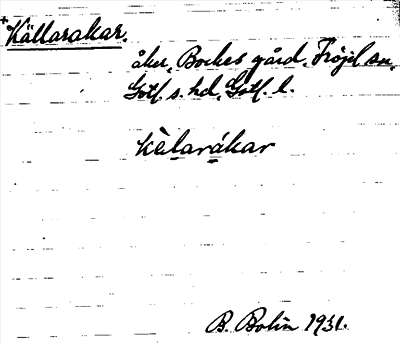 +Källarakar.
åker, Bockes gård, Fröjel sn,
Gotl. s. hd, Gotl. l.
kèlarákar
B. Bolin 1931.